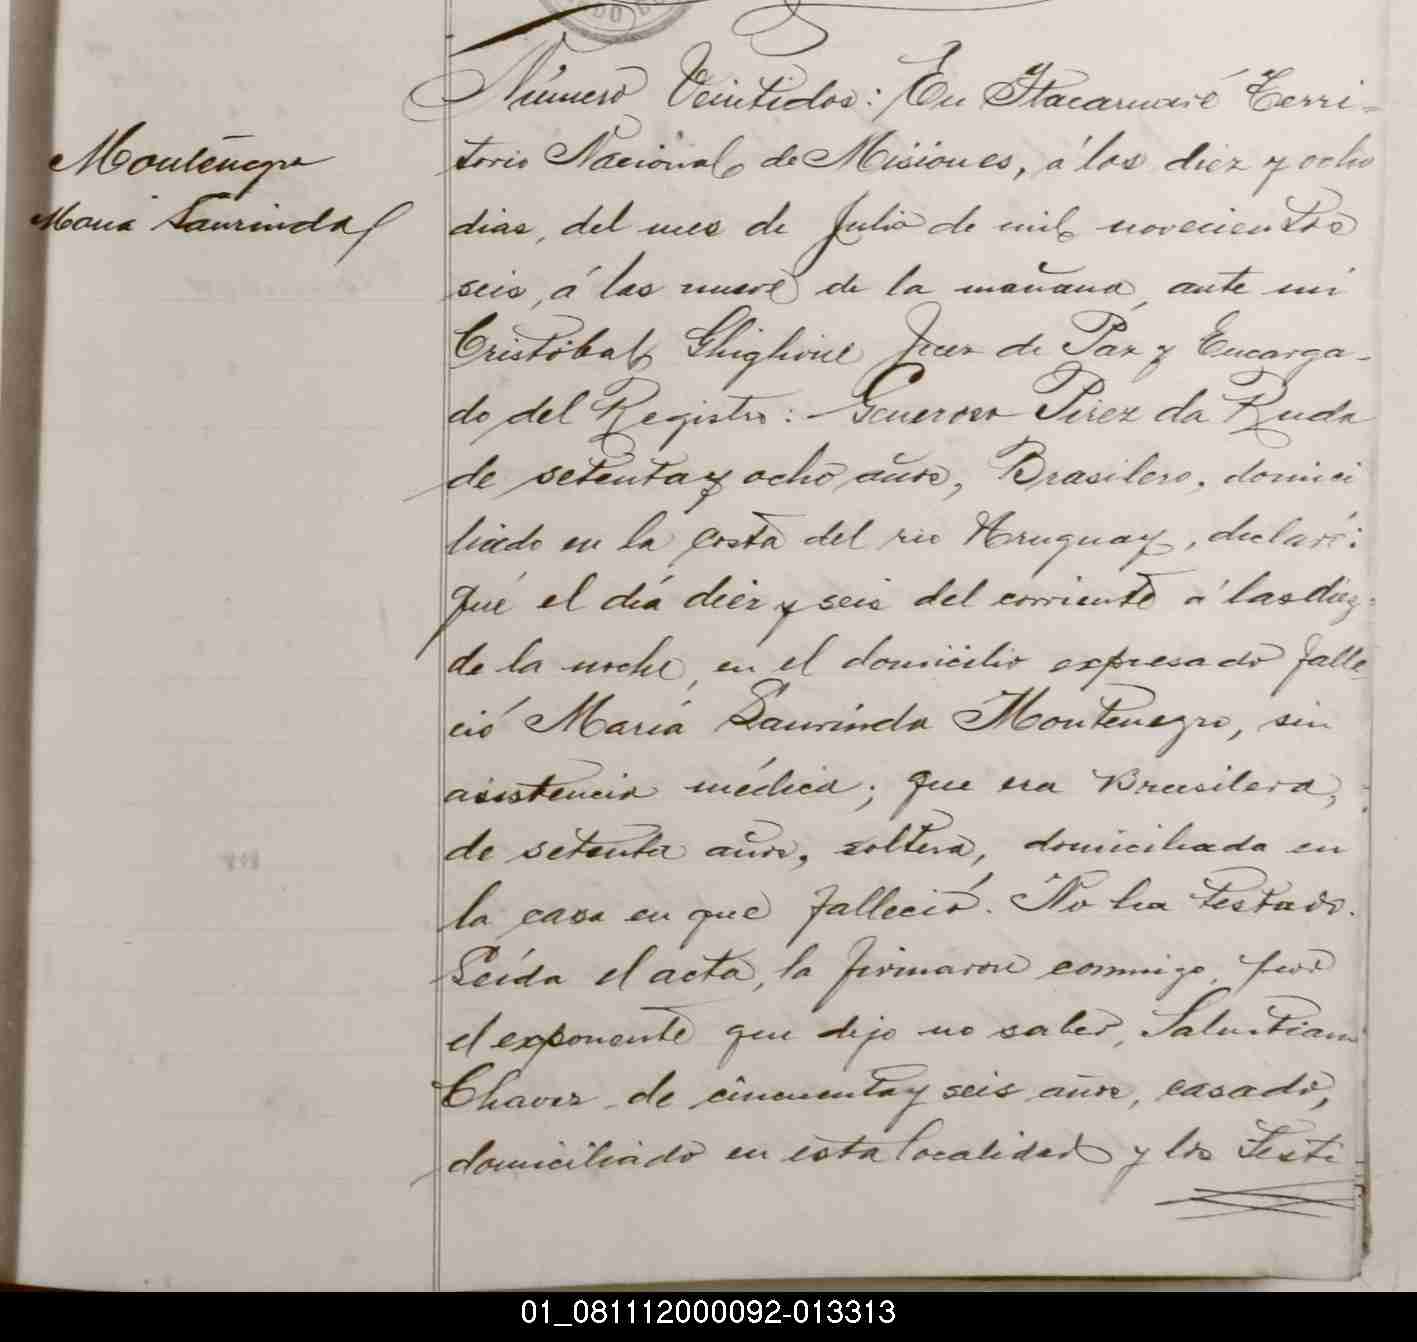 Montenegro
Maria Laurinda
Número Veintidos: En Itacaruaré Terri-
torio Nacional de Misiones, á los diez y ocho
dias, del mes de Julio de mil novecientos
seis, á las nueve de la mañana, ante mi
Cristóbal Ghiglione Juez de Paz y Encarga-
do del Registro: Generoso Pirez da Ruda
de setenta y ocho años, Brasilero, domici
liado en la costa del rio Uruguay, declaró:
Qué el día diez y seis del corriente á las diez
de la noche, en el domicilio expresado falle
ció María Laurinda Montenegro, sin
asistencia médica; que era Brasilera,
de setenta años, soltera, domiciliada en
la casa en que falleció. No ha testado.
Leída el acta, la firmaron conmigo, por
el exponente que dijo no saber, Salustiano
Chavez de cincuenta y seis años, casado,
domiciliado en esta localidad y los Testi
01_081112000092-013313